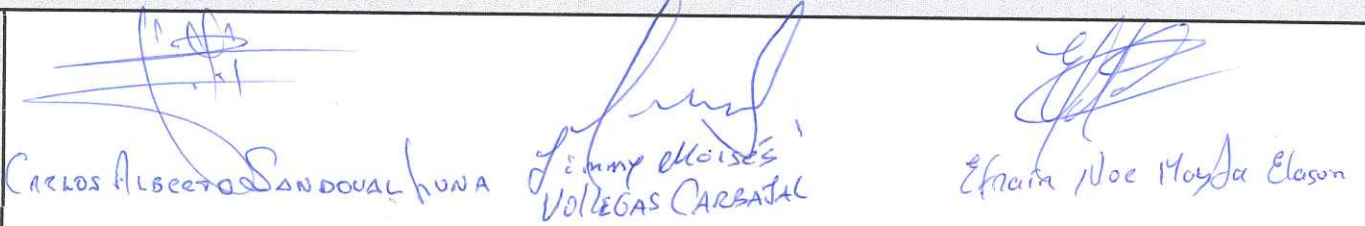 CARLOS ALBERTO SANDOVAL LUNA
Jimmy Moisés
VILLEGAS CARBAJAL
Efrain Noe